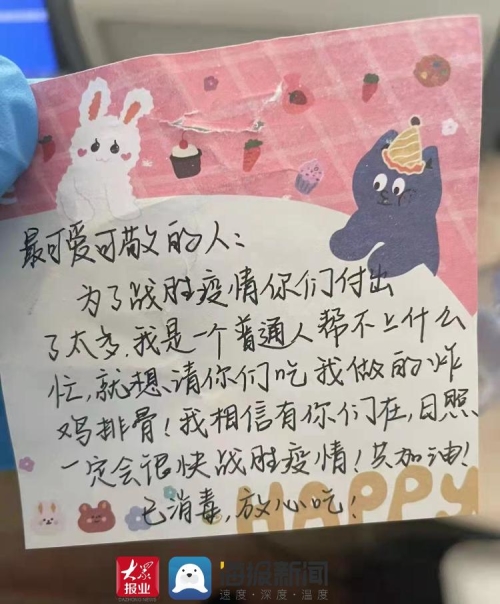 最可爱可敬的人：
为了战胜疫情你们付出
了太多，我是一个普通人帮不上什么
忙，就想请你们吃我做的炸
鸡排骨！我相信有你们在，日照
一定会很快战胜疫情！共加油！
已消毒，放心吃！
HAPPY
大众
报业
DAZHONG NEWS
海报新闻
速度·深度·温度